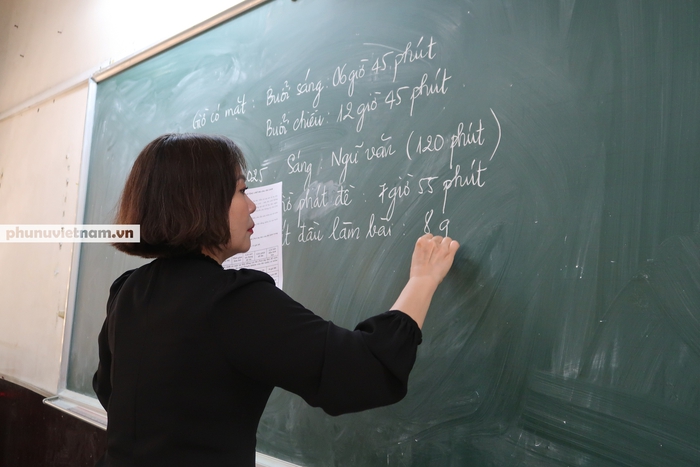 Giờ có mặt : Buổi sáng : 06 giờ 45 phút
Buổi chiều : 12 giờ 45 phút
025 Sáng : Ngữ văn (120 phút)
phát đề : 7 giờ 55 phút
đầu làm bài : 8 g
phunuvietnam.vn